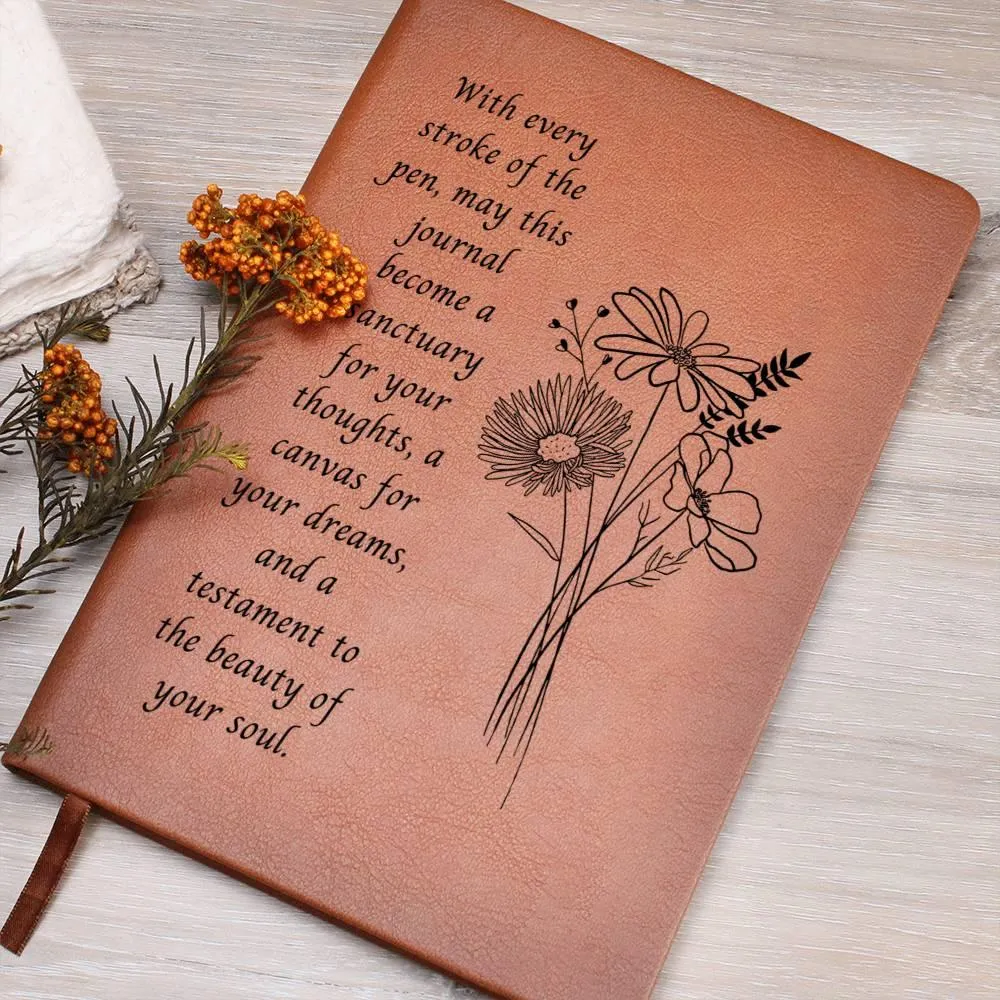 With every
stroke of the
pen, may this
journal
become a
sanctuary
for your
thoughts, a
canvas for
your dreams,
and a
testament to
the beauty of
your soul.